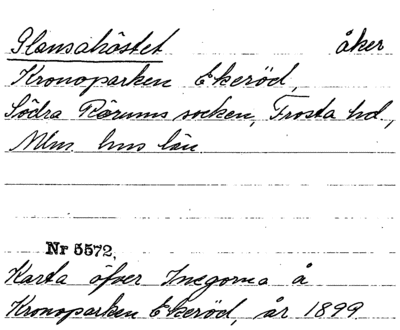 Glansahöstet åker
Kronoparken Ekeröd,
Södra Rörums socken, Frosta hd.,
Mlm. hus län
Nr 5572.
Karta öfver Inegorna å
Kronoparken Ekeröd, år 1899.